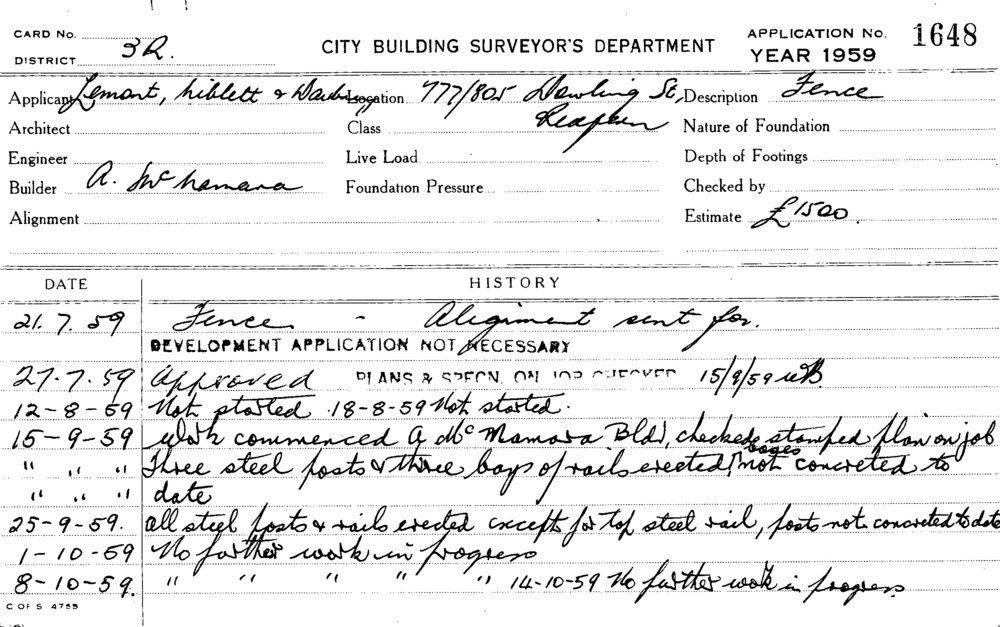 CARD No.
DISTRICT 3R.
CITY BUILDING SURVEYOR'S DEPARTMENT
APPLICATION No. 1648
YEAR 1959
Applicant Lemont, Niblett & Location 777/805 Dowling St, Description Fence
Architect Class Redfern Nature of Foundation
Engineer Live Load Depth of Footings
Builder A. McNamara Foundation Pressure Checked by
Alignment Estimate £1500.
DATE HISTORY
21.7.59 Fence - Aligiment sent for.
DEVELOPMENT APPLICATION NOT NECESSARY
27.7.59 Approved PLANS & SPECN. ON JOB CHECKED 15/9/59
12-8-59 Not started 18-8-59 Not started.
15-9-59 Work commenced A McMamara Bld, checked & stamped plan on job
" " " Three steel posts & three bays of rails erected, bases not concreted to
" " " date
25-9-59. All steel posts & rails erected except for top steel rail, posts not concreted to date
1-10-59 No further work in progress
8-10-59. " " " " " 14-10-59 No further work in progress
C OF S 4755